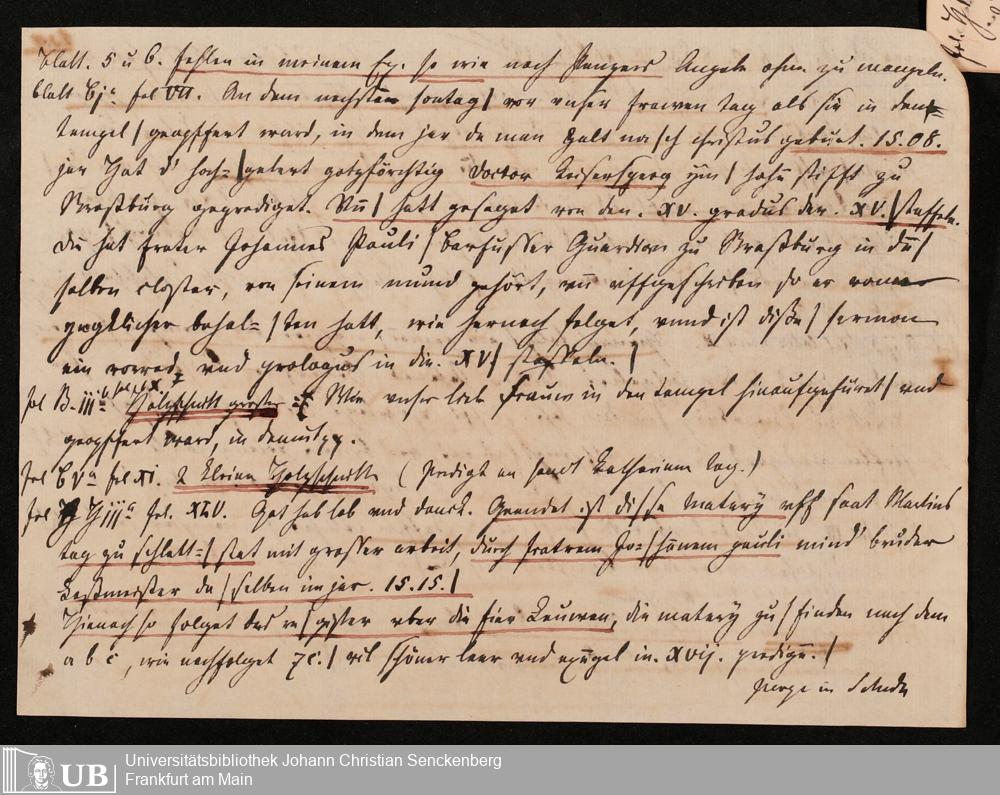 Blatt. 5 u 6. fehlen in meinem Ex. so wie nach Panzers Angabe ohne zu mangeln.
Blatt Bja fol VII. An dem nechsten sontag / vor unser frawen tag als sie in den
tempel / geopffert ward, in dem jar da man zalt nach christus geburt. 15.08.
jar Hat d' hoch= / gelert gotzförchtig Doctor Keisersperg ym / hohen stifft zu
Straßburg geprediget. Un / hatt gesaget von den. XV. gradus den. XV. / staffeln.
Die hat frater Johannes Pauli / Barfusser Guardion zu Straßburg in de /
selben closter, von seinem mund gehört, un uffgeschriben so er
behal= / ten hatt, wie hernach folget, unnd ist diße / sermon
ein vorred und prologus in die. XV / staffeln. /
fol B. iiib fol X Holzschnitt Wie unser liebe Frauw in den tempel hinaufgefüret / und
geopffert ward, in
fol C va fol XI. 2 kleine Holzschnitte (Predigt an sanct Katharinen tag.)
fol H iiia fol. XLV. Got hab lob und danck. Geendet ist disse matery uff sant Martins
tag zu schlett= / stat mit grosser arbeit, durch fratrem Jo= / hanem pauli mind' bruder
Leßmeister da / selben im jar. 15.15. /
Hienach so folget das re / gister uber die fier Leuwen, die matery zu / finden nach dem
a b c, wie nachfolget / vil schöner leer und in. xvij. predigen. /
in
Universitätsbibliothek Johann Christian Senckenberg
Frankfurt am Main
UB